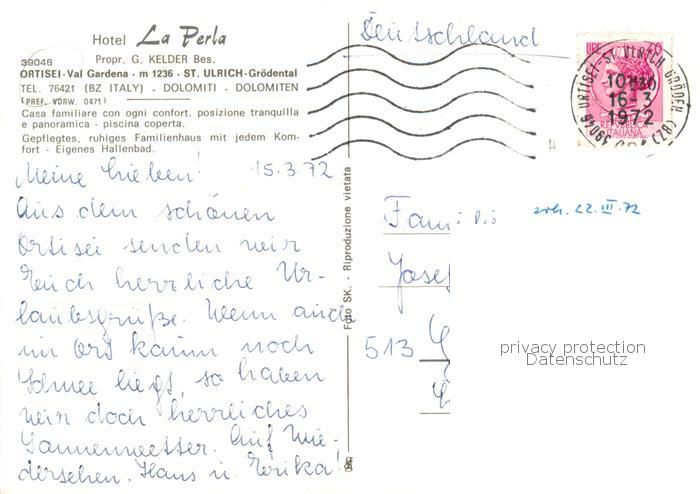 Hotel La Perla
Propr. G. KELDER Bes.
39046
ORTISEI-Val Gardena - m 1236 - ST. ULRICH-Grödental
TEL. 76421 (BZ ITALY) - DOLOMITI - DOLOMITEN
(PREF. VORW. 0471)
Casa familiare con ogni confort, posizione tranquilla
e panoramica - piscina coperta.
Gepflegtes, ruhiges Familienhaus mit jedem Kom-
fort - Eigenes Hallenbad.
Meine Lieben! 15.3.72
Aus dem schönen
Ortisei senden wir
Euch herrliche Ur-
laubsgrüße. Wenn auch
im Ort kaum noch
Schnee liegt, so haben
wir doch herrliches
Sonnenwetter. Auf Wie-
dersehen. Hans u. Erika!
Foto SK. - Riproduzione vietata
Deutschland
LIRE
REPVBBLICA
ITALIANA
39046 ORTISEI-ST. ULRICH GRÖDEN (BZ)
16-3
1972
erh. 22.III.72
Fami
Josef
513
privacy protection
Datenschutz